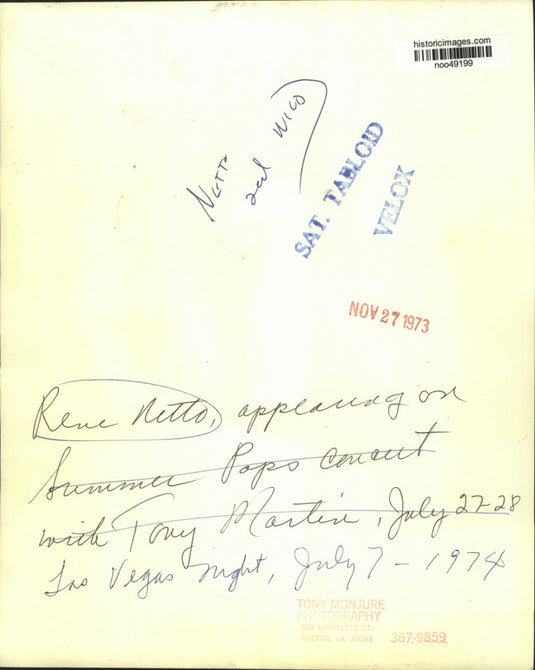 historicimages.com
noo49199
Netto
and Wico
SAT. TABLOID
VELOX
NOV 27 1973
Rene Netto, appearing on
Summer Pops Concert
with Tony Martin, July 27-28
Las Vegas Night, July 7 - 1974
TONY MONJURE
PHOTOGRAPHY
LAFAYETTE ST.
GRETNA, LA. 70053 367-9859